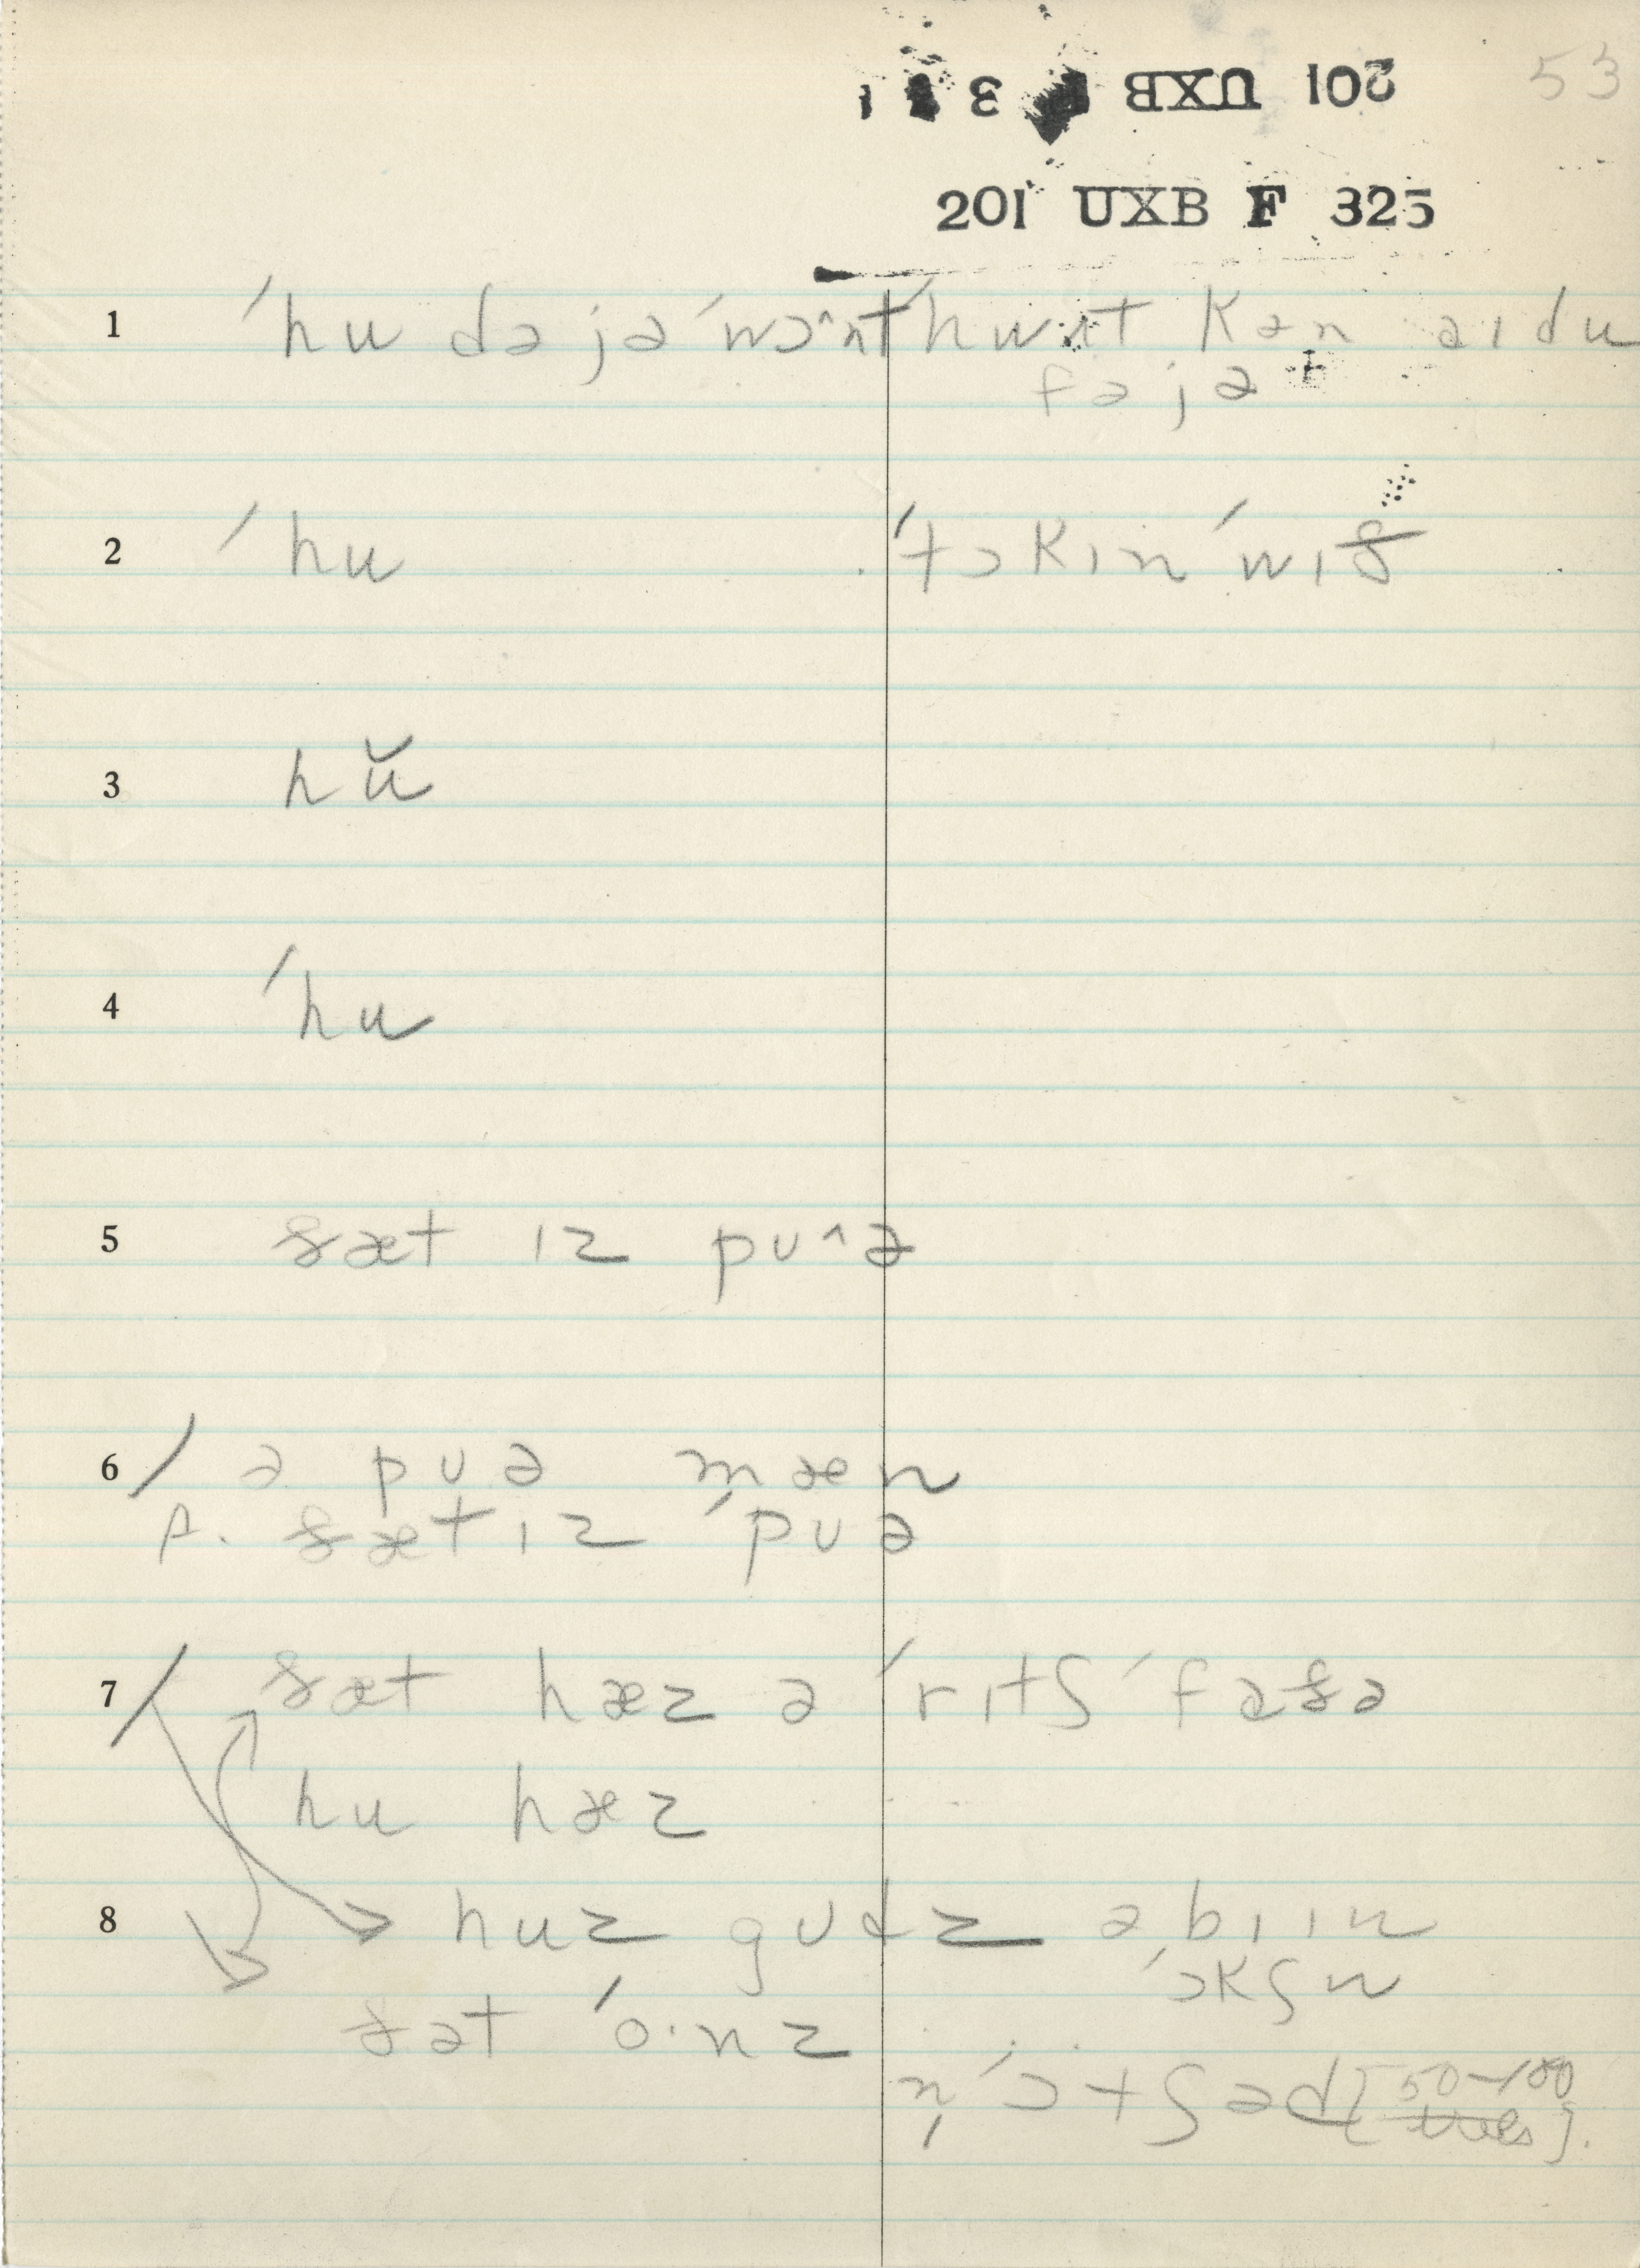 201 UXB F 3
53
201 UXB F 325
1 ˈhu də jə ˈwɔ^nt ˈhwɪt kən aɪ du
fə jə
2 ˈhu ˈtɔkɪn ˈwɪð
3 hŭ
4 ˈhu
5 ðæt ɪz pʊ^ə
6 / ə pʊə mæn
p. ðæt ɪz ˈpʊə
7 / ðæt hæz ə ˈrɪtʃ ˈfɑðə
hu hæz
8 huz gʊdz ə bɪɪn
ˈɔkʃn
ðət ˈo·nz
n̩ ˈɔ·tʃəd [50–100
trees].